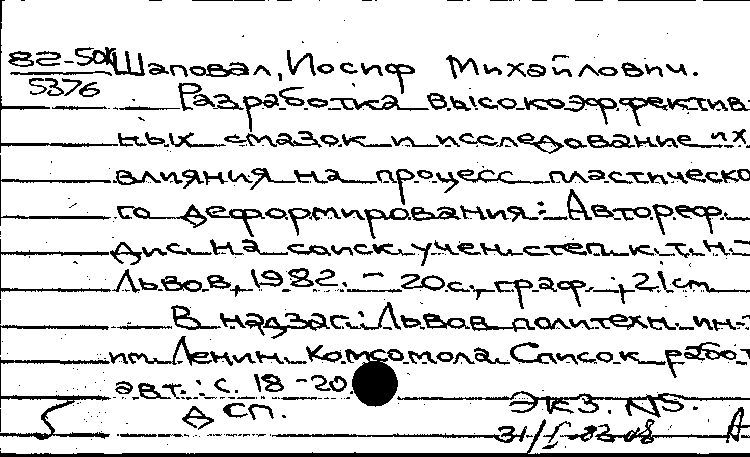 82-5OK Шаповал, Иосиф Михайлович.
5376
Разработка высокоэффектив
ных смазок и исследование их
влияния на процесс пластическо
го деформирования: Автореф.
дис. на соиск. учен. степ. к. т. н. -
Львов, 1982. - 20с., граф. ; 21см
В надзаг.: Львов. политехн. ин-т
им. Ленин. Комсомола. Список работ
авт.: с. 18-20
ДСП.
Экз. №5.
5
31/I-83
А